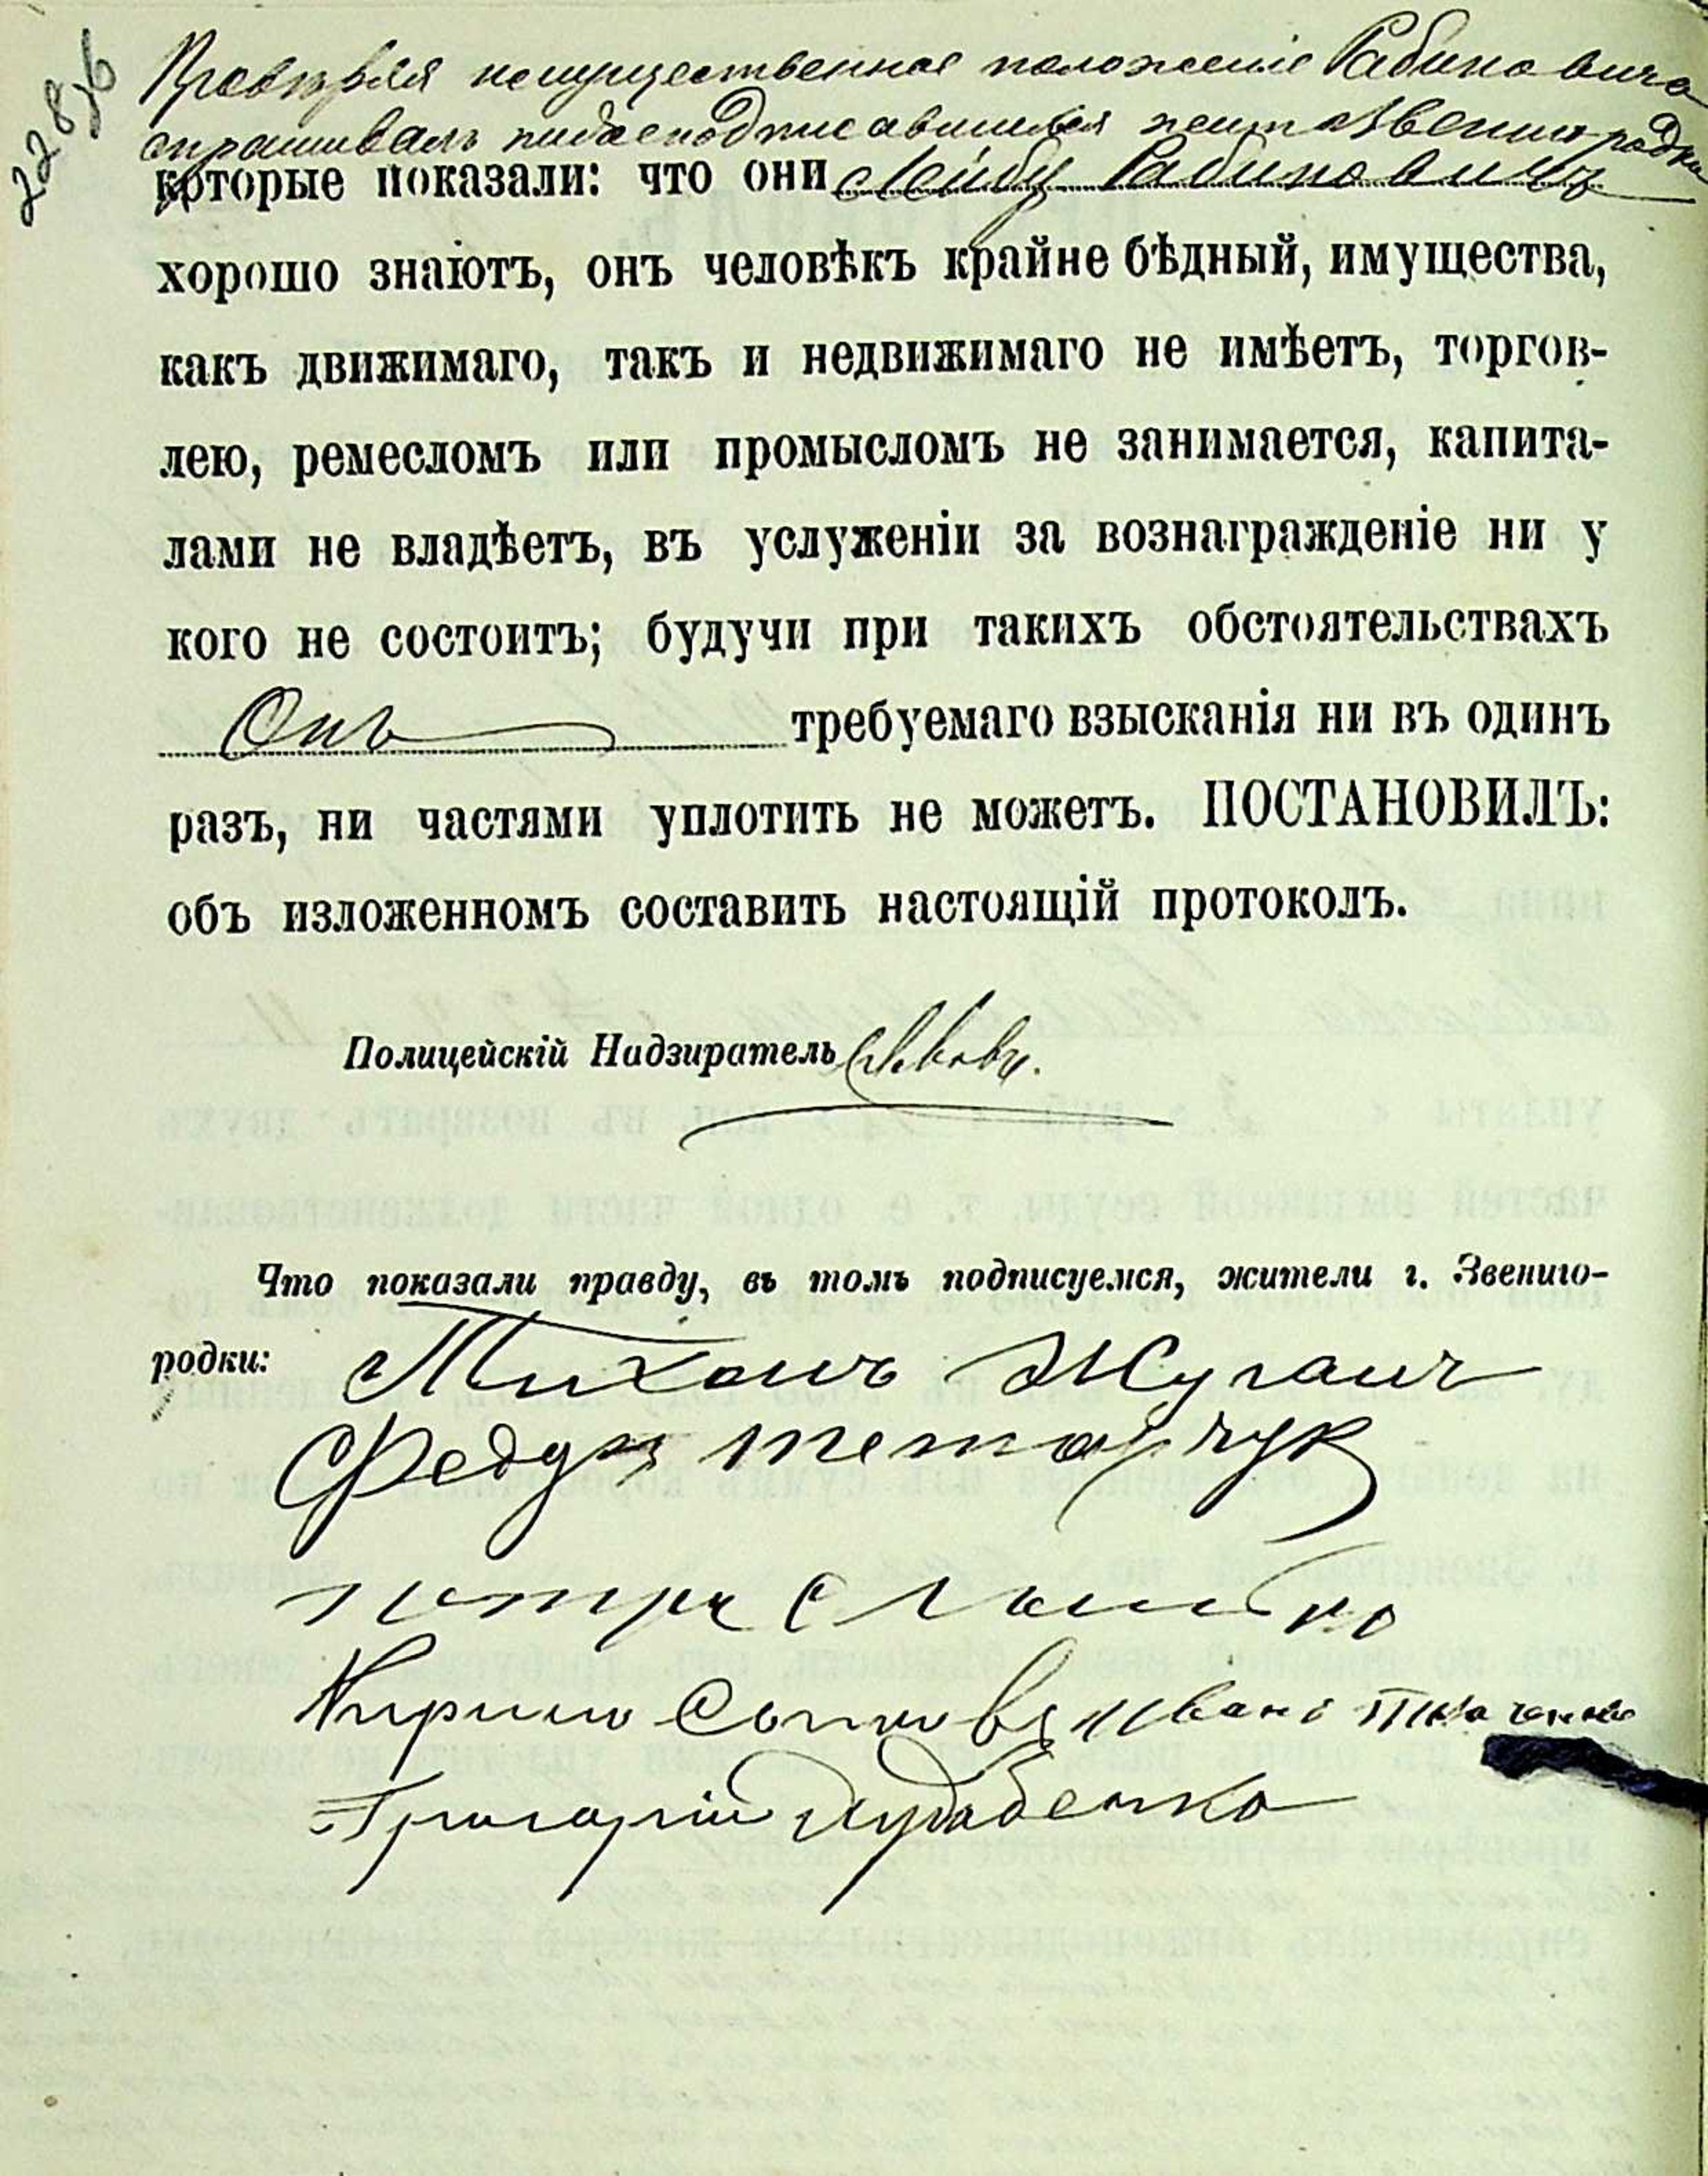 22876
Провѣряя имущественное положеніе Рабиновича
опрашивалъ нижеподписавшихся жит. г. Звенигородки
которые показали: что они Лейбу Рабиновичъ
хорошо знаютъ, онъ человѣкъ крайне бѣдный, имущества,
какъ движимаго, такъ и недвижимаго не имѣетъ, торгов-
лею, ремесломъ или промысломъ не занимается, капита-
лами не владѣетъ, въ услуженіи за вознагражденіе ни у
кого не состоитъ; будучи при такихъ обстоятельствахъ
Онъ требуемаго взысканія ни въ одинъ
разъ, ни частями уплотить не можетъ. ПОСТАНОВИЛЪ:
объ изложенномъ составить настоящій протоколъ.
Полицейскій Надзиратель
Что показали правду, въ томъ подписуемся, жители г. Звениго-
родки: Тихонъ Жуганъ
Федоръ
петръ
Кирило Иванъ
Григорій